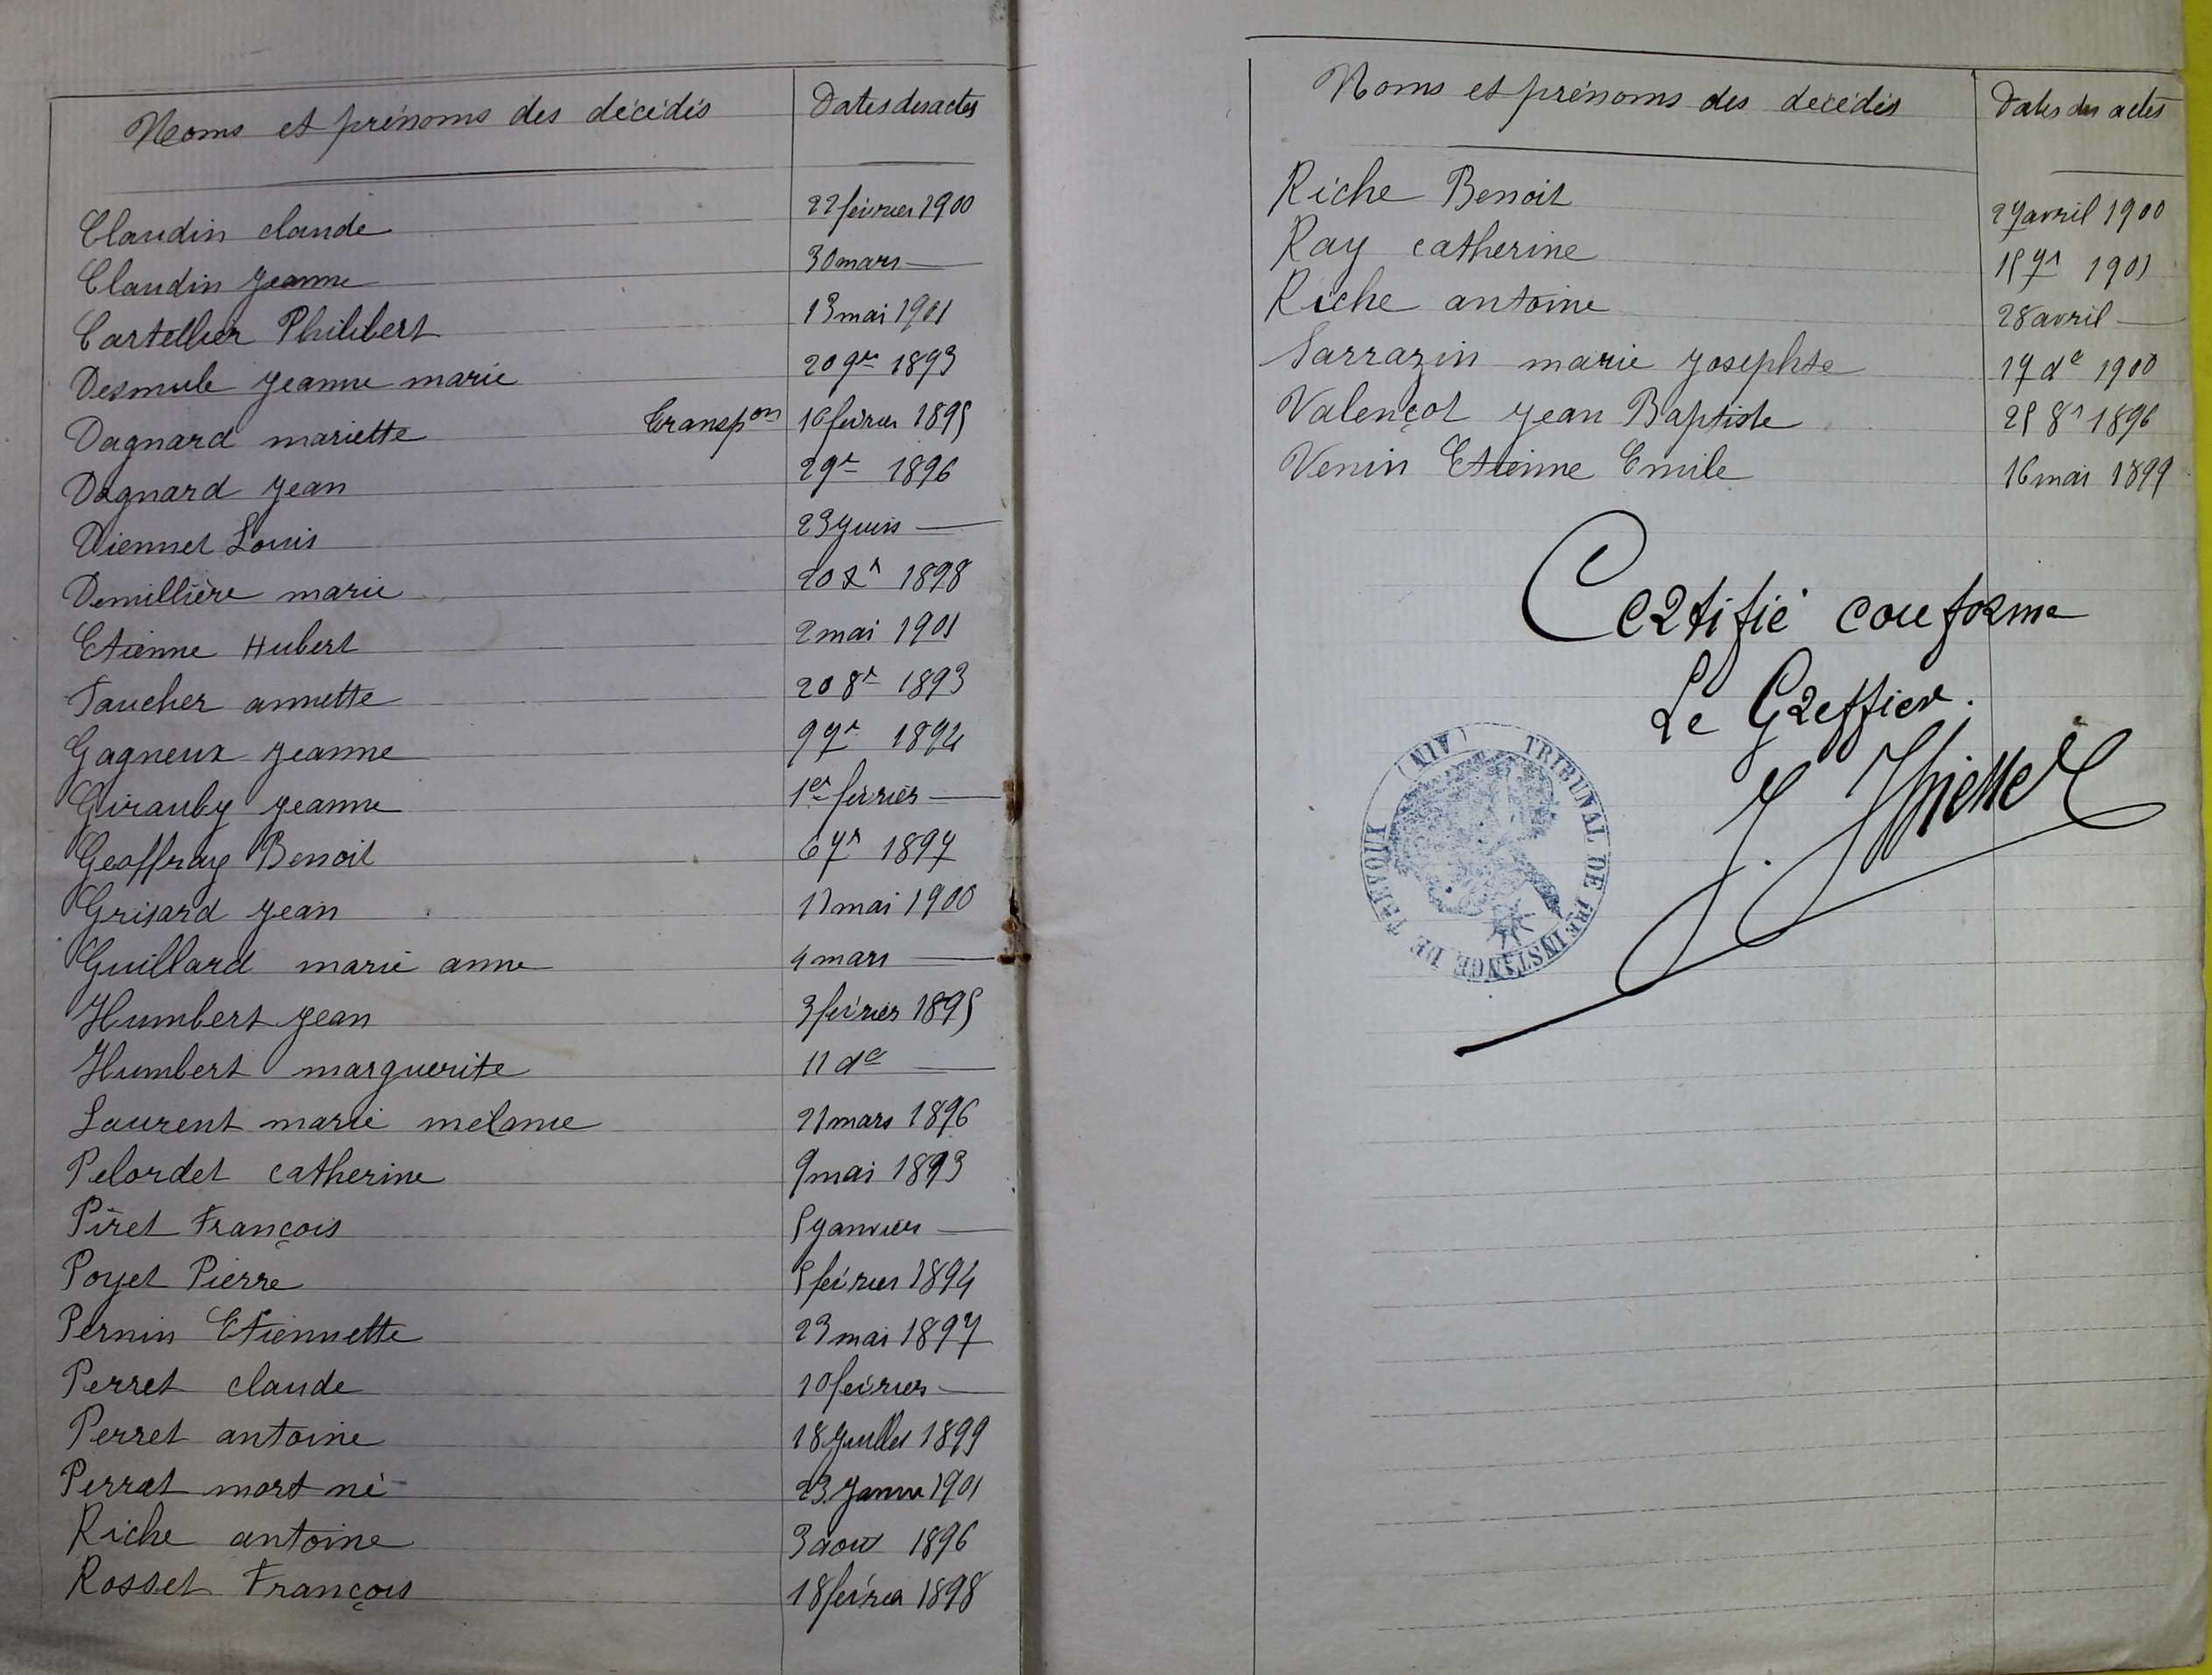 Noms et prénoms des décédés Dates des actes
Claudin claude 22 février 1900
Claudin Jeanne 30 mars —
Cartellier Philibert 13 mai 1901
Desmule Jeanne marie 20 9re 1893
Dagnard mariette Transpon 16 février 1895
Dagnard Jean 2 9re 1896
Diennet Louis 23 Juin —
Demillière marie 20 Xr 1898
Etienne Hubert 2 mai 1901
Faucher annette 20 8r 1893
Gagneux Jeanne 9 7r 1894
Girauby Jeanne 1er février —
Geoffray Benoit 6 7r 1897
Grisard Jean 17 mai 1900
Guillard marie anne 4 mars —
Humbert Jean 3 février 1895
Humbert marguerite 11 do —
Laurent marie melanie 21 mars 1896
Pelordet catherine 9 mai 1893
Piret François 5 Janvier —
Poyet Pierre 5 février 1894
Pernin Etiennette 23 mai 1897
Perret claude 10 février —
Perret antoine 18 Juillet 1899
Perrat mort né 23 Janvr 1901
Riche antoine 3 aout 1896
Rosset François 18 févrir 1898
Noms et prénoms des décédés Dates des actes
Riche Benoit 27 avril 1900
Ray catherine 15 7r 1901
Riche antoine 28 avril —
Sarrazin marie Josephte 17 do 1900
Valençot Jean Baptiste 25 8r 1896
Venin Etienne Emile 16 mai 1899
Certifié conforme
Le Greffier.
TRIBUNAL DE 1RE INSTANCE DE TRÉVOUX (AIN)